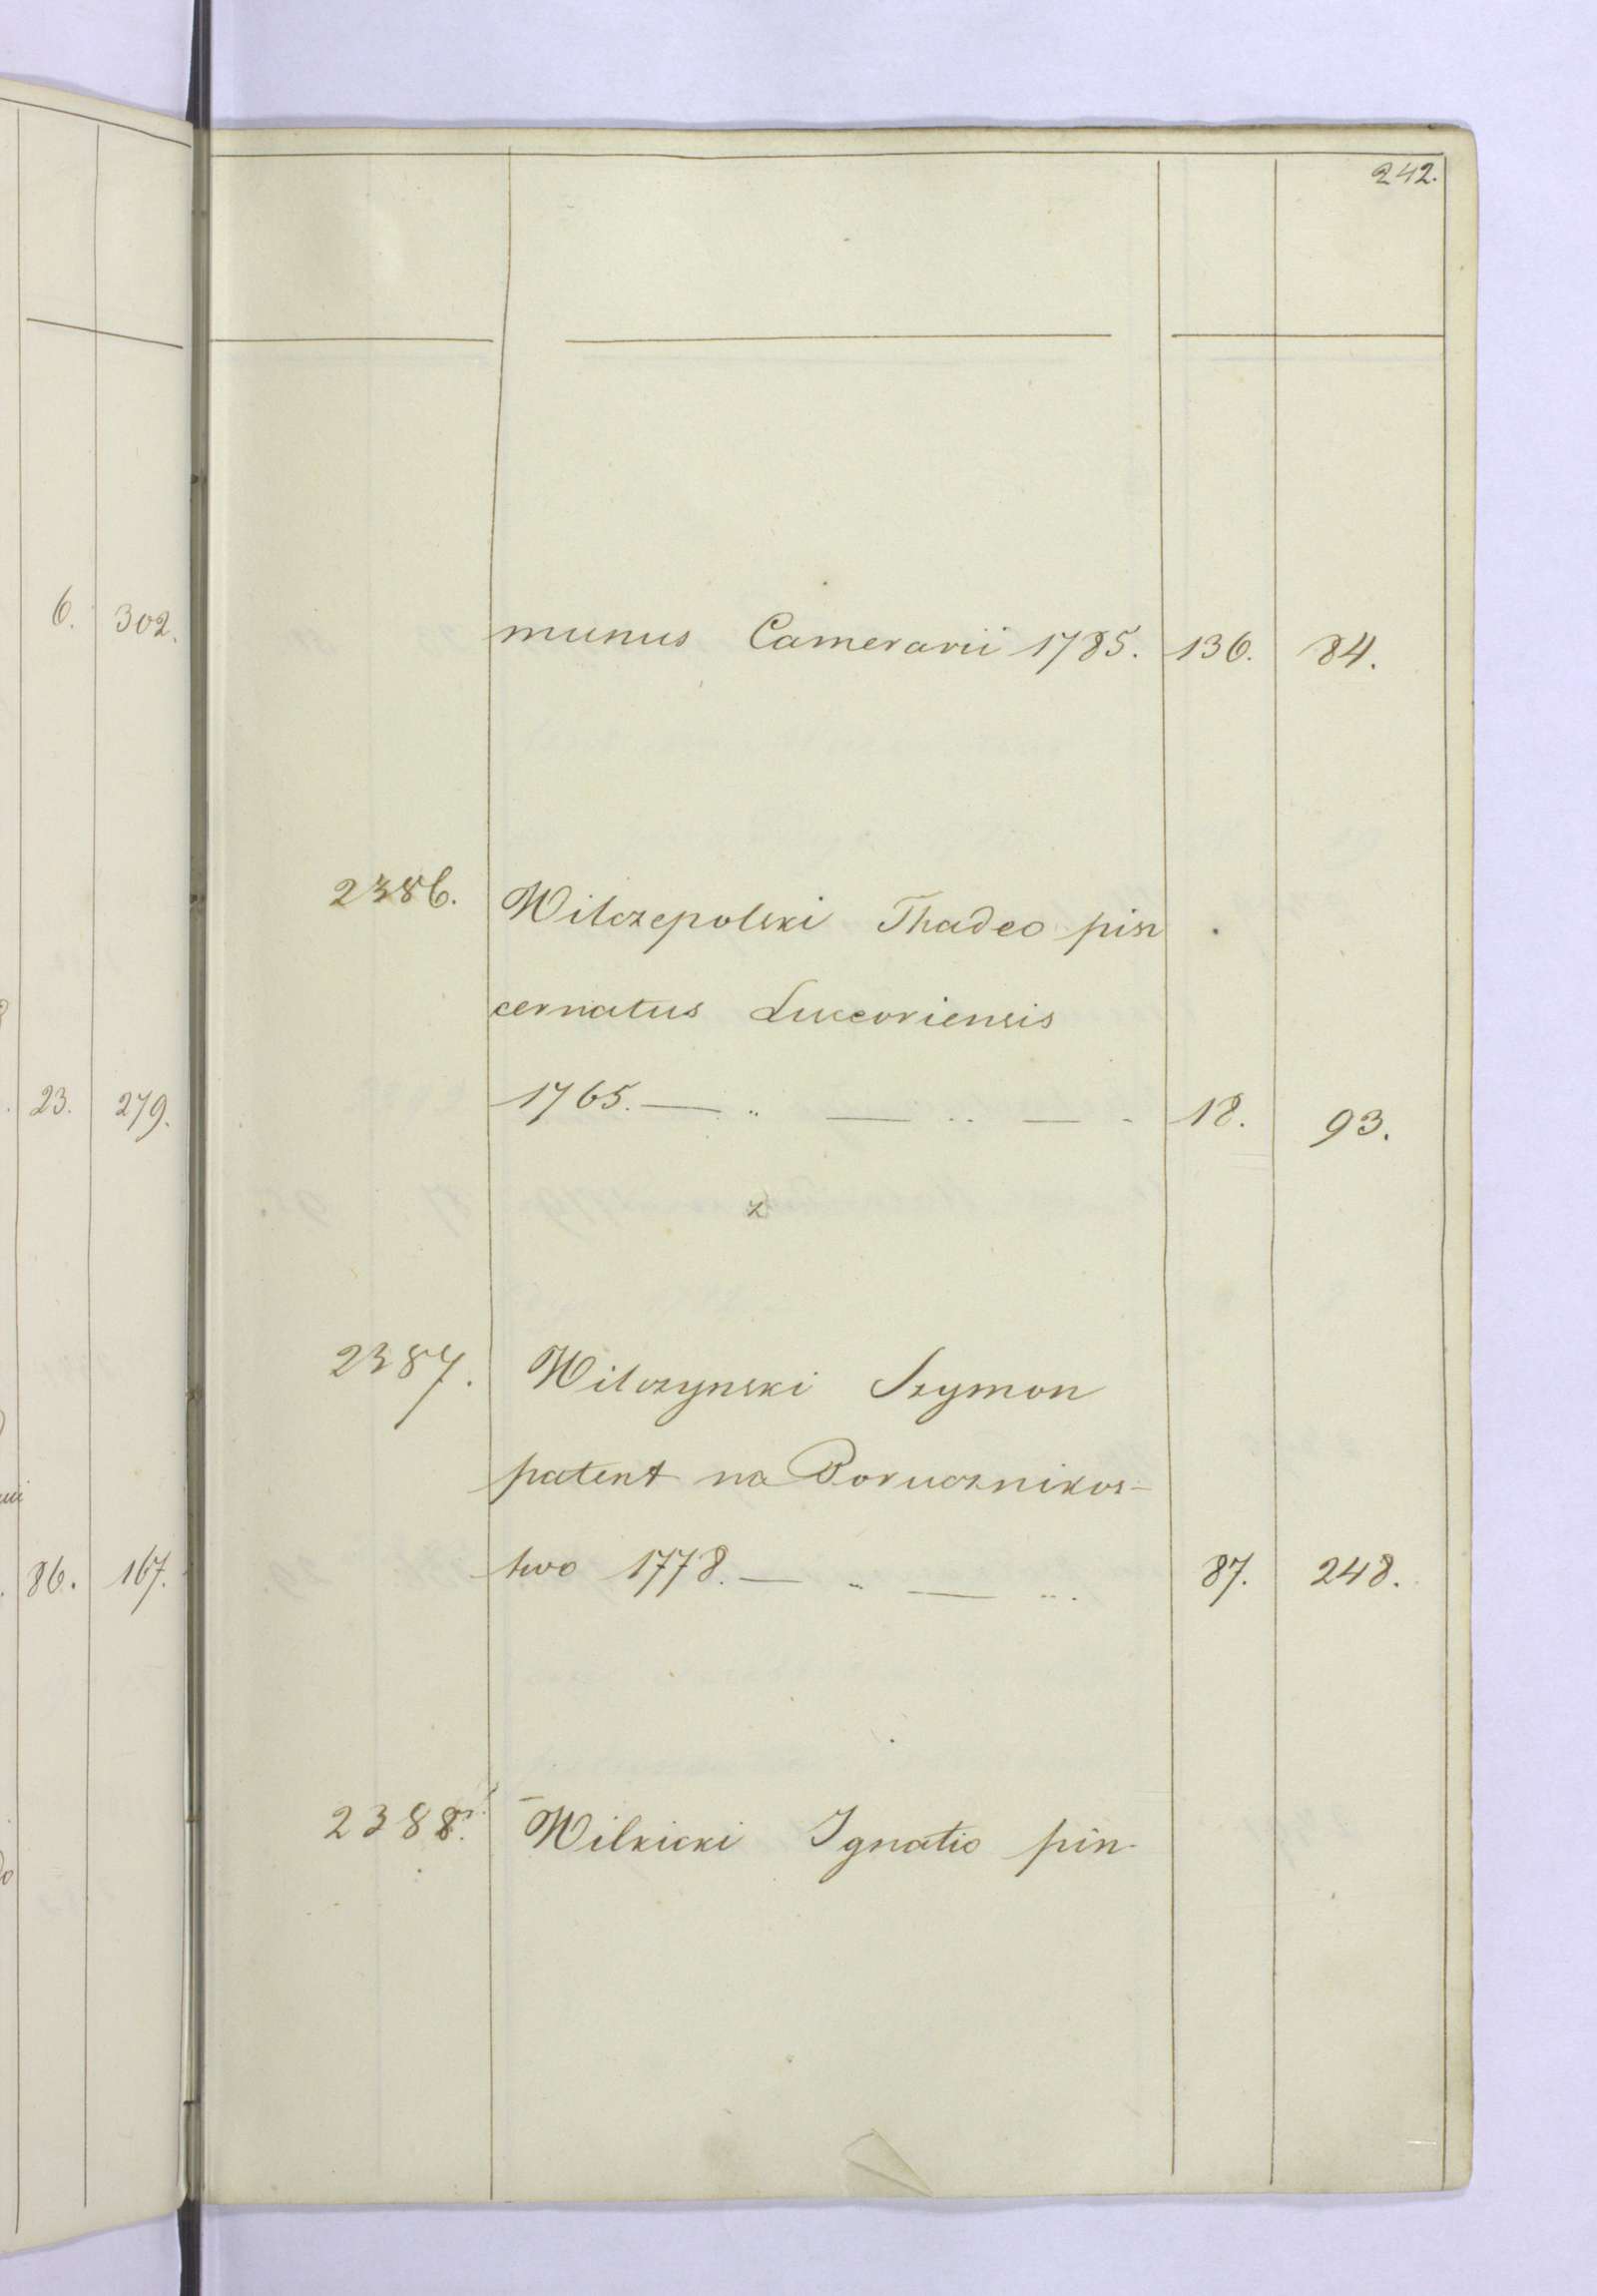 242.
6. 302.
munus Camerarii 1785. 136. 84.
2386. Wilczepolski Thadeo pin
cernatus Luceoriensis
23. 279.
1765. — " — " — - 18. 93.
2387. Wilczynski Szymon
patent na Porucznikos-
86. 167.
two 1778. — " — " . 87. 248.
2388. Wilkicki Ignatio pin-